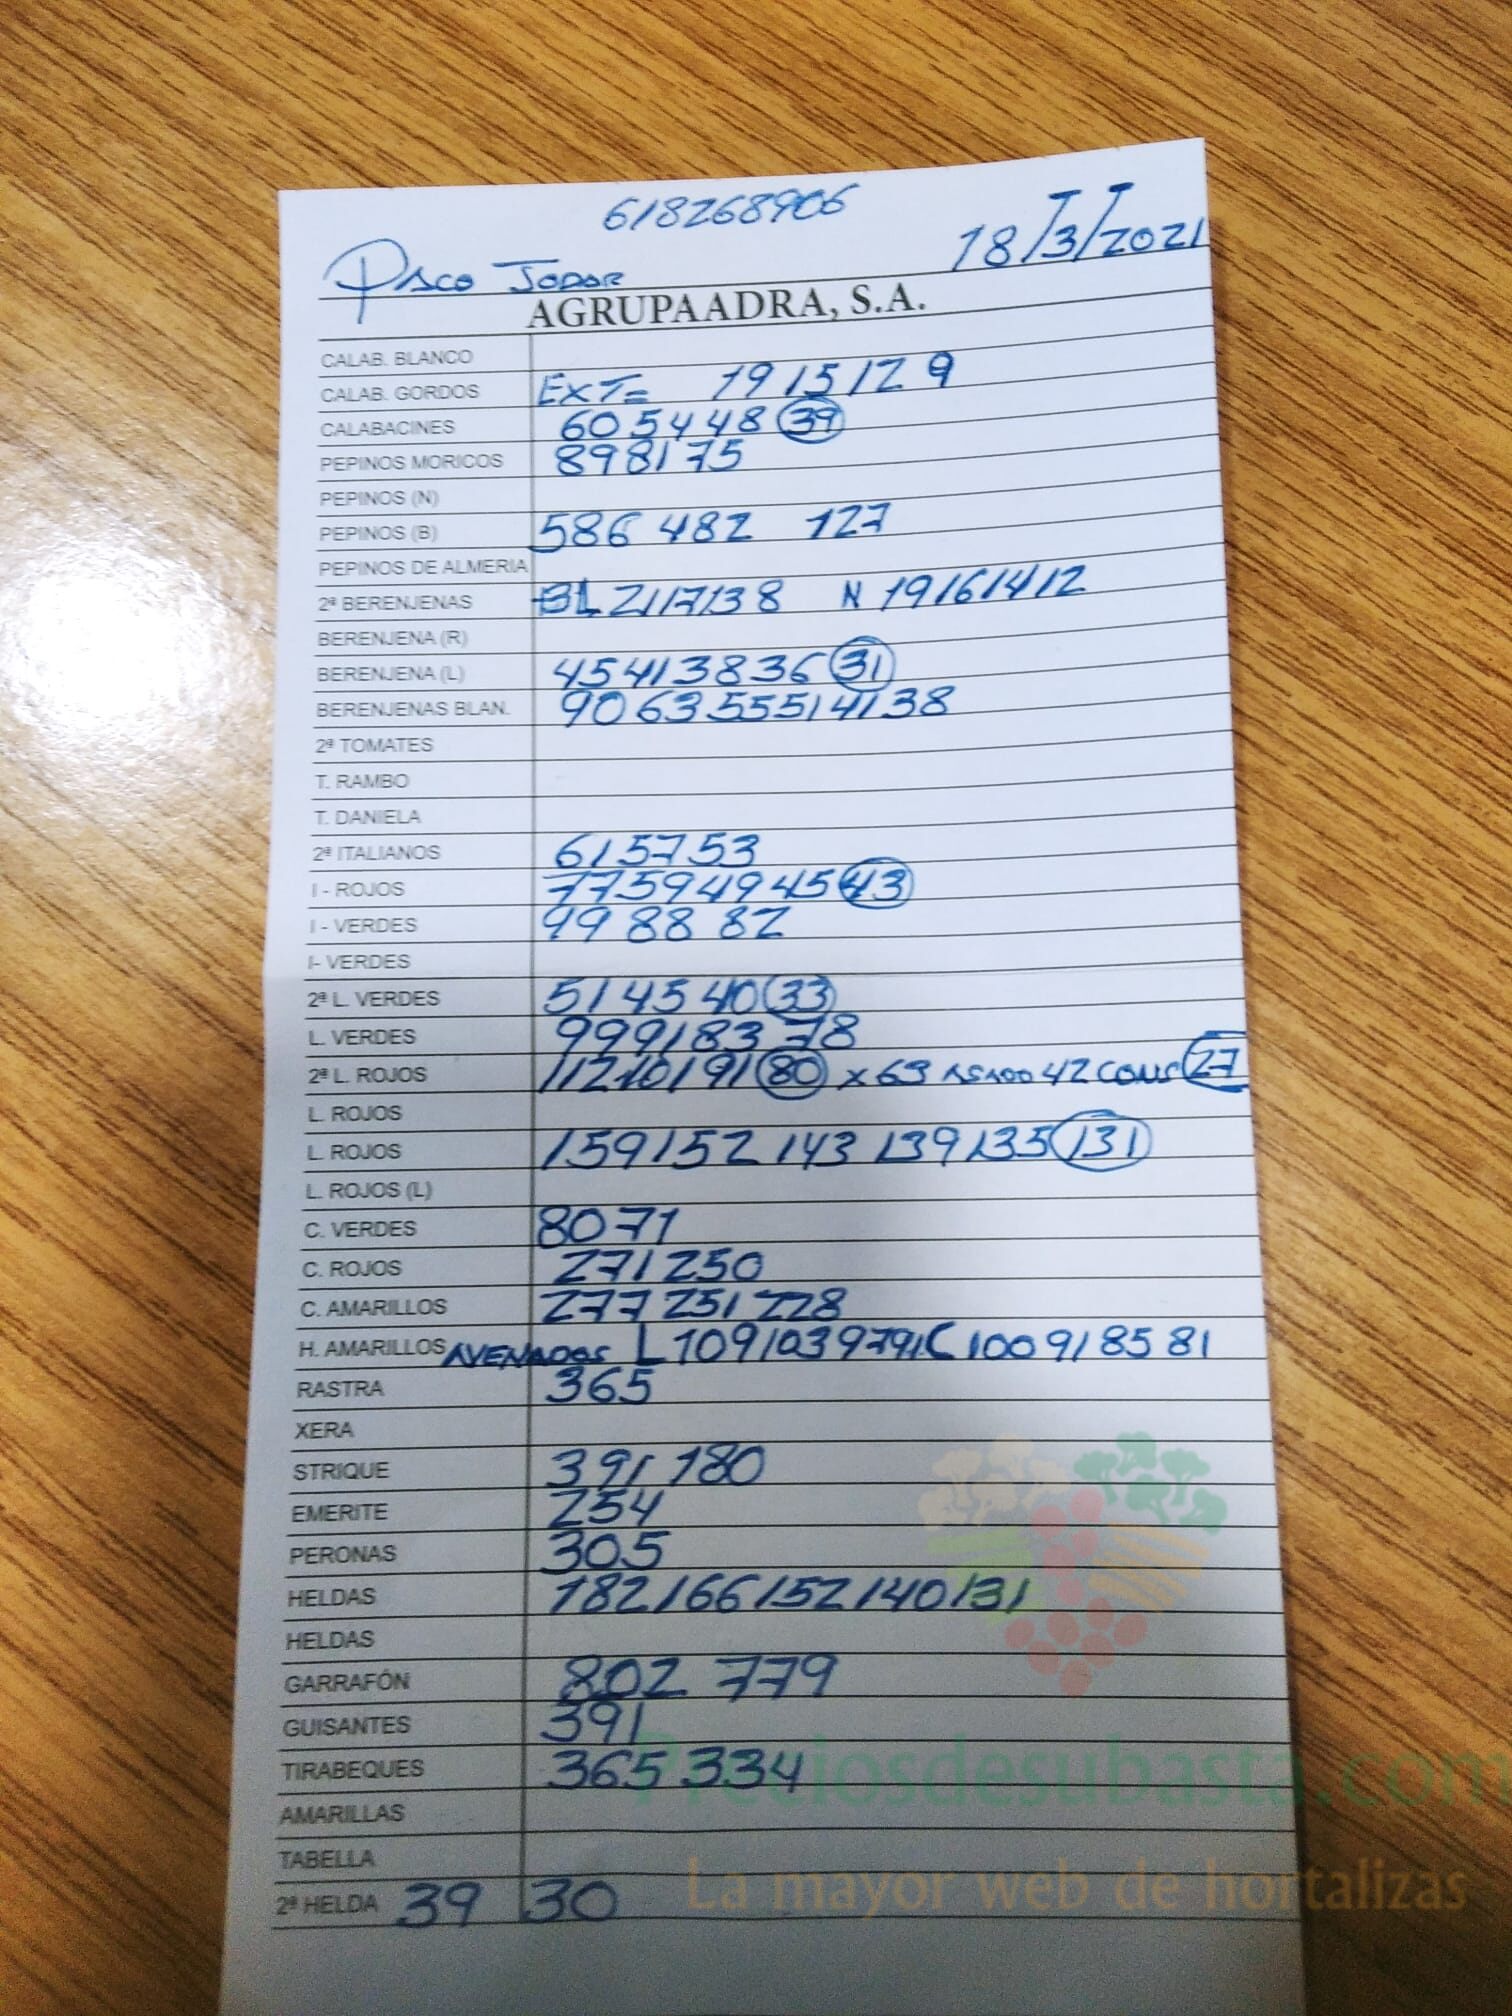 618268906
Paco Jodar 18/3/2021
AGRUPAADRA, S.A.
CALAB. BLANCO
CALAB. GORDOS EXT= 19 15 12 9
CALABACINES 60 54 48 39
PEPINOS MORICOS 89 81 75
PEPINOS (N)
PEPINOS (B) 58 6 48 2 127
PEPINOS DE ALMERIA
2ª BERENJENAS BL 21 17 13 8 N 19 16 14 12
BERENJENA (R)
BERENJENA (L) 45 41 38 36 31
BERENJENAS BLAN. 90 63 55 51 41 38
2ª TOMATES
T. RAMBO
T. DANIELA
2ª ITALIANOS 61 57 53
I - ROJOS 77 59 49 45 43
I - VERDES 99 88 82
I- VERDES
2ª L. VERDES 51 45 40 33
L. VERDES 99 91 83 78
2ª L. ROJOS 112 101 91 80 x 63 ASADO 42 CONS 27
L. ROJOS
L. ROJOS 159 152 143 139 135 131
L. ROJOS (L)
C. VERDES 80 71
C. ROJOS 271 250
C. AMARILLOS 277 251 228
H. AMARILLOS AVENADOS L 109 103 97 91 C 100 91 85 81
RASTRA 365
XERA
STRIQUE 391 180
EMERITE 254
PERONAS 305
HELDAS 182 166 152 140 131
HELDAS
GARRAFÓN 802 779
GUISANTES 391
TIRABEQUES 365 334
Preciosdesubasta.com
AMARILLAS
TABELLA
2ª HELDA 39 30
La mayor web de hortalizas